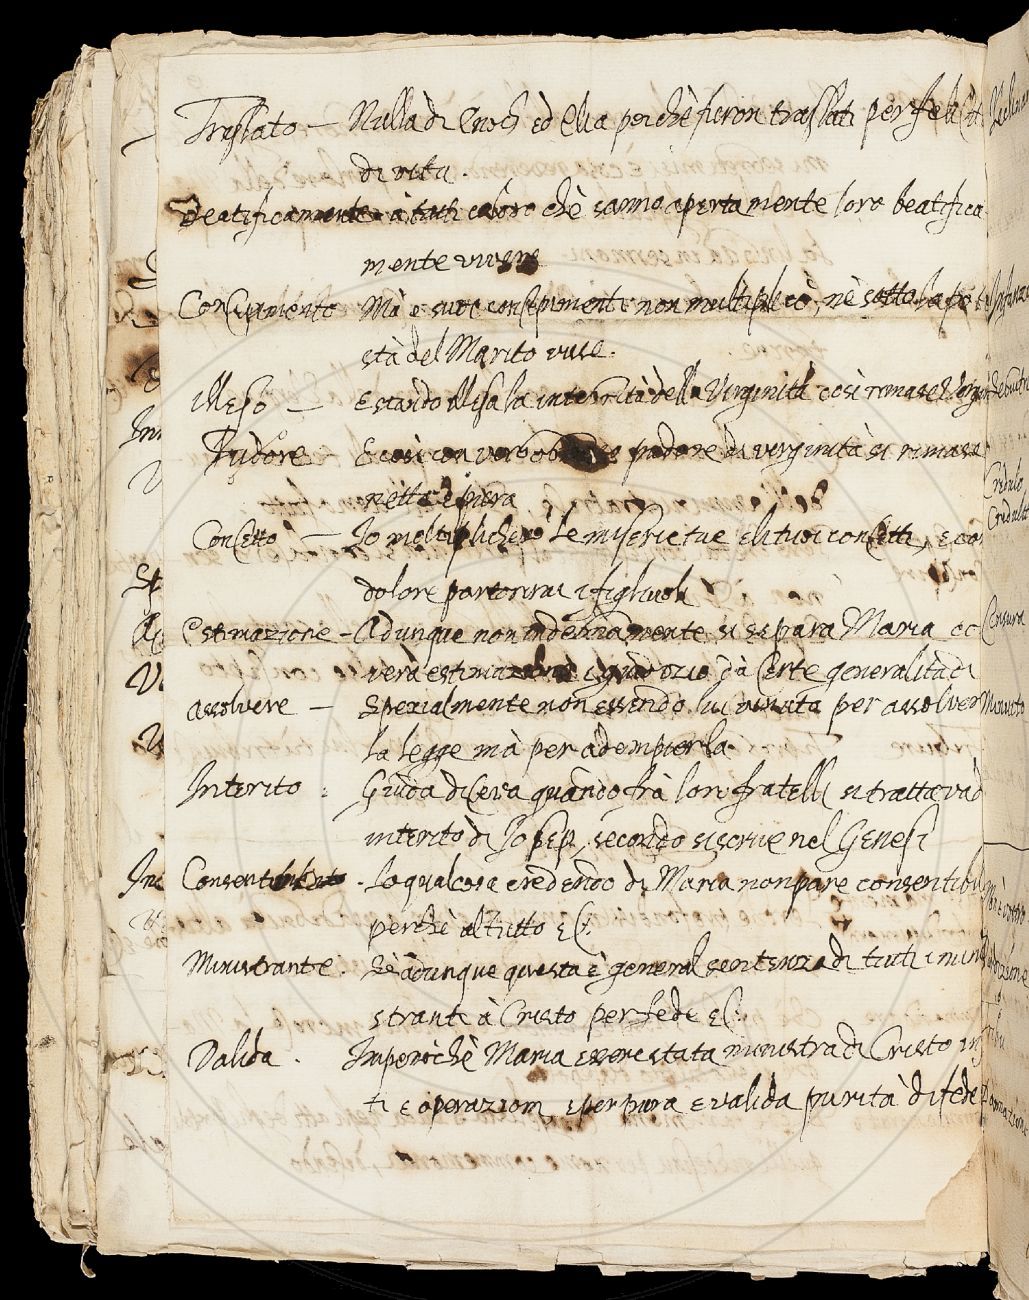 Traslato — Nulla di Enoch ed Elia perchè furon traslati per felicità
di vita.
Beatificamente à tutti coloro chè sanno apertamente loro beatifica
mente vivere
Concepimento Mà e suoi concepimenti non multiplicò, nè sotto la pote
stà del Marito visse.
Illeso — Estando illesa la integrità della Virginità così rimase Vergin
Pudore — E così con vero pudore di verginità si rimase
netta e pura
Concetto — Io moltiplicherò le miserie tue e li tuoi concetti, e con
dolore partorirai i figliuoli
Estimazione — Adunque non indegnamente si separa Maria
vera estimazione dà certe generalità di
assolvere — Spezialmente non essendo lui venuto per assolver
la legge mà per adempierla.
Interito : Giuda diceva quando frà loro fratelli si trattava d
interito di Josep, secondo si scrive nel Genesi
Consentibile . La qual cosa credendo di Maria non pare consentibil
perchè al tutto &c:
Ministrante . Sè adunque questa è general sentenza di tutti i mini
stranti à Cristo per fede &c:
Valida . Imperochè Maria essere stata ministra di Cristo in
ti e operazioni, e per pura e valida purità di fede